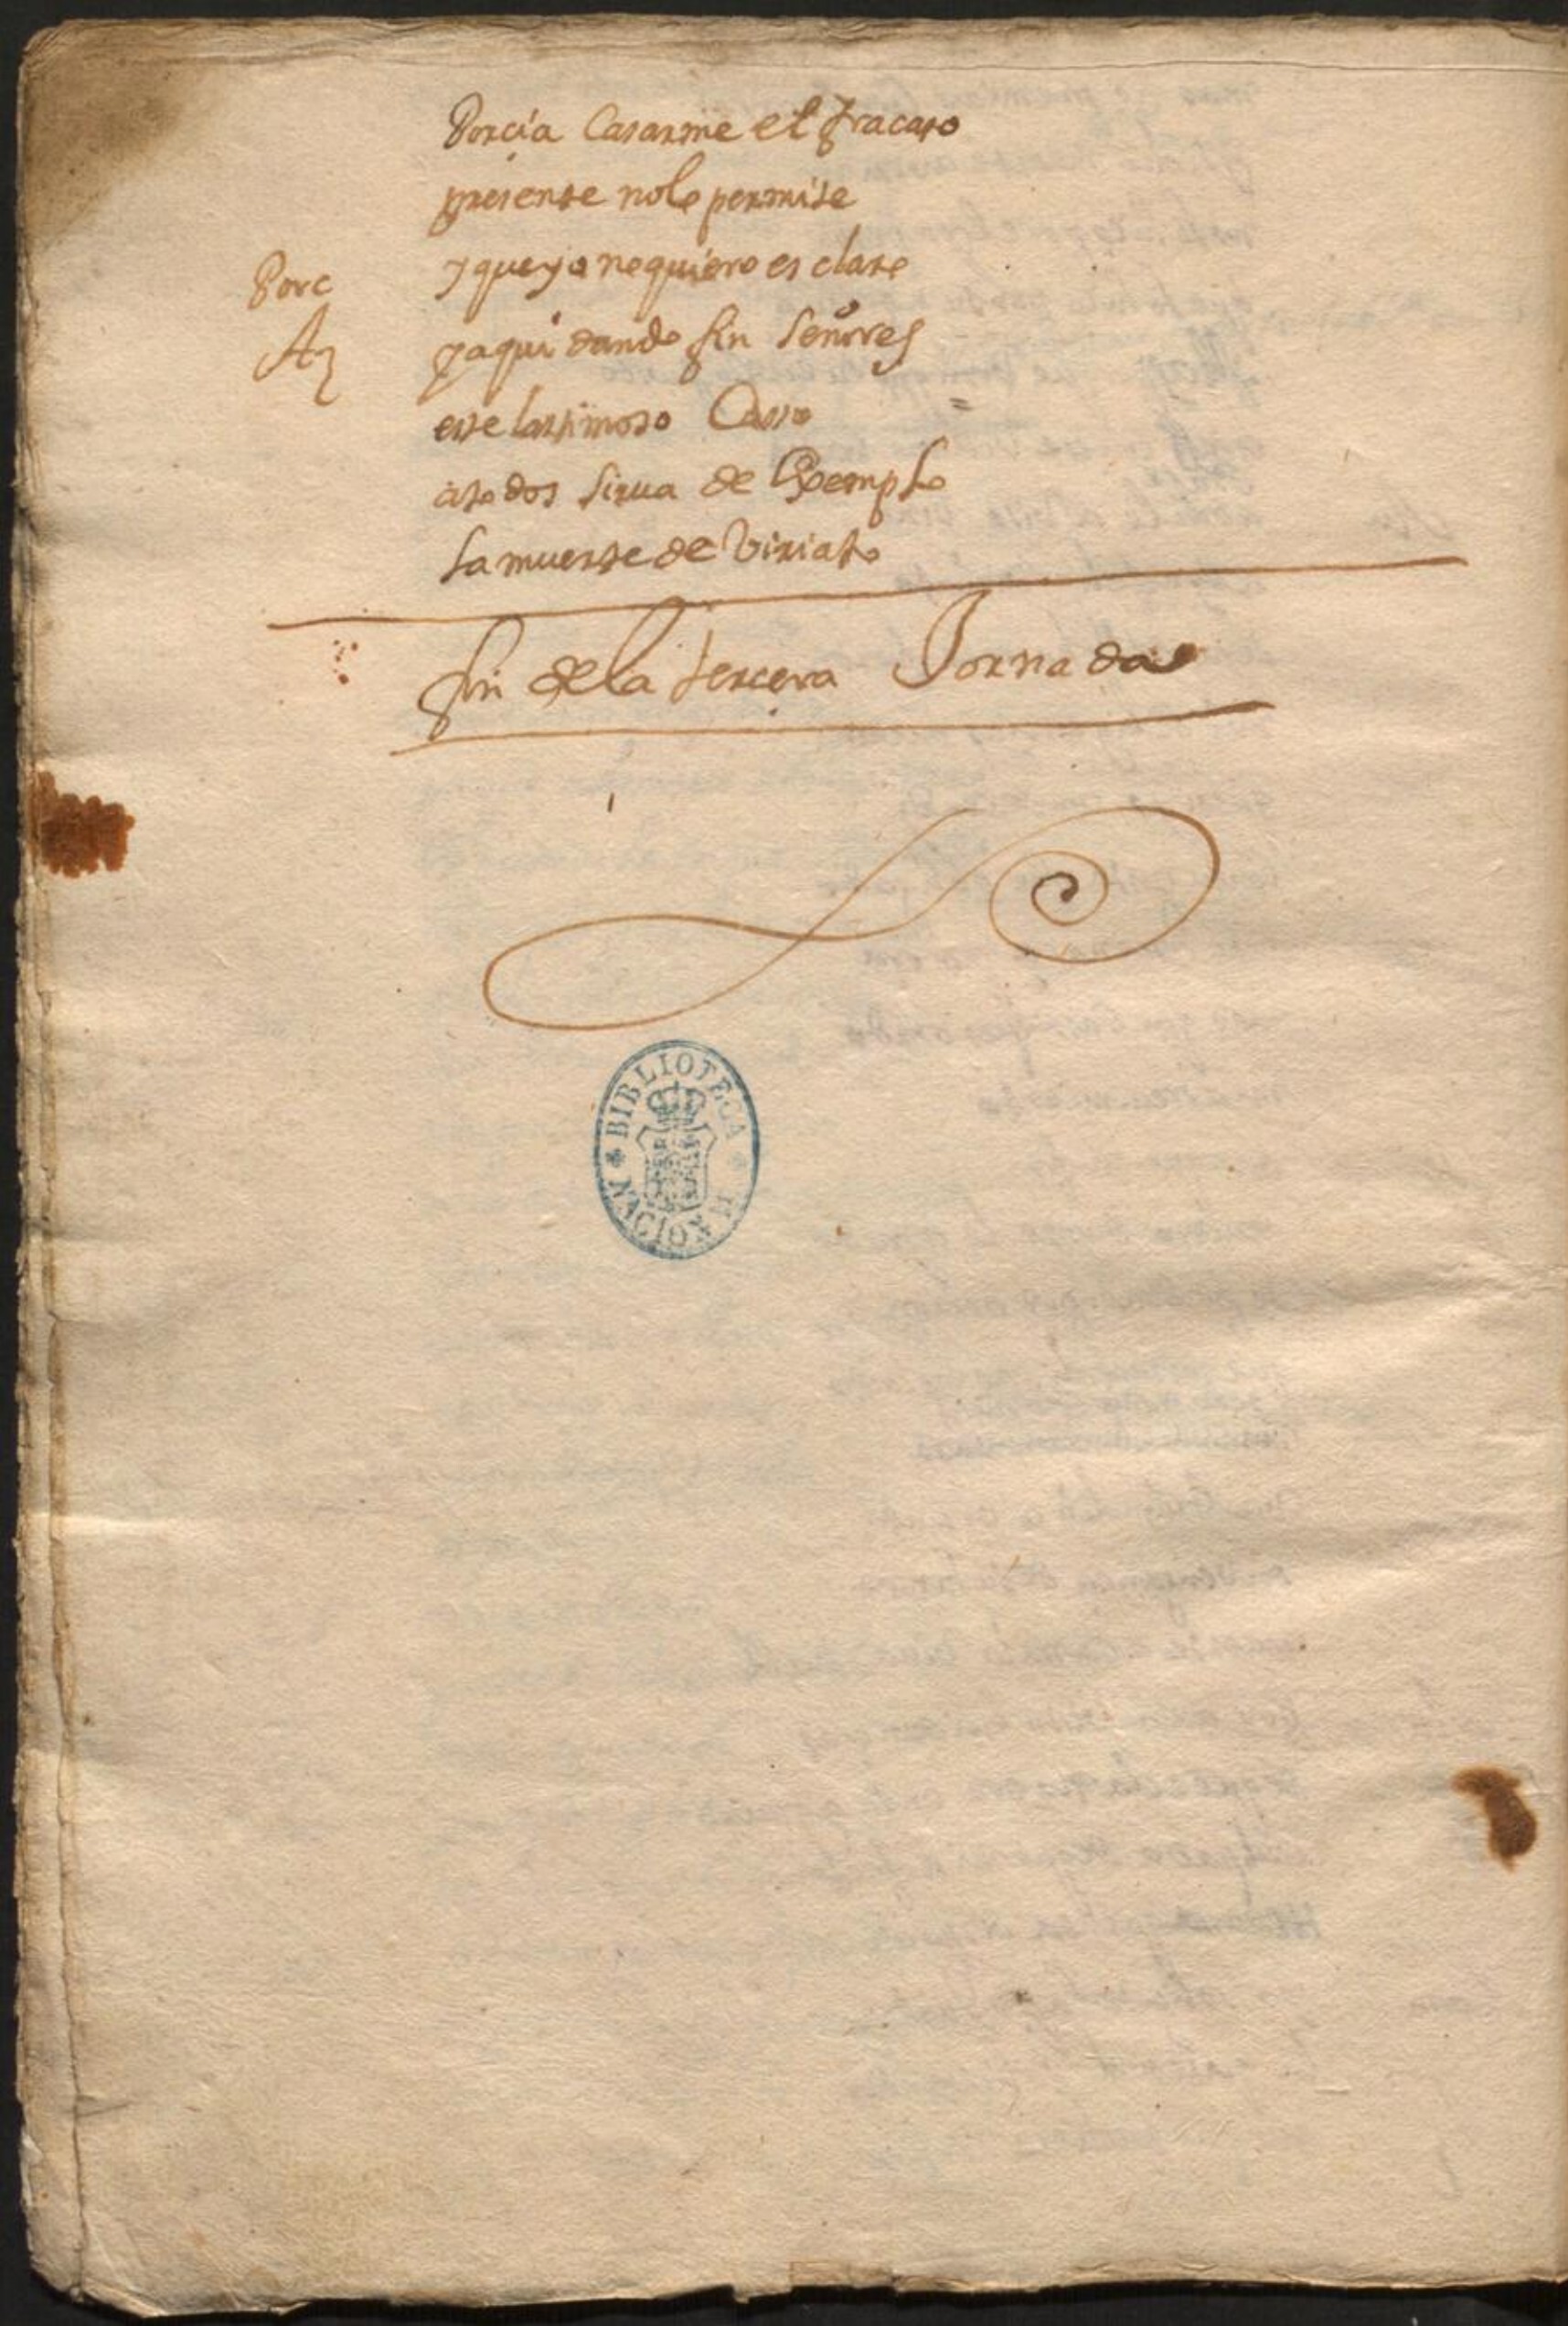 Porcia Casarme el fracaso
presente nolo permite
Porc yqueyo nequiero es claro
Az yaqui dando fin señores
este lastimoso Casso
atodos sirua de Exemplo
la muerte de Viriato
fin dela tercera Jornada
BIBLIOTECA
NACIONAL